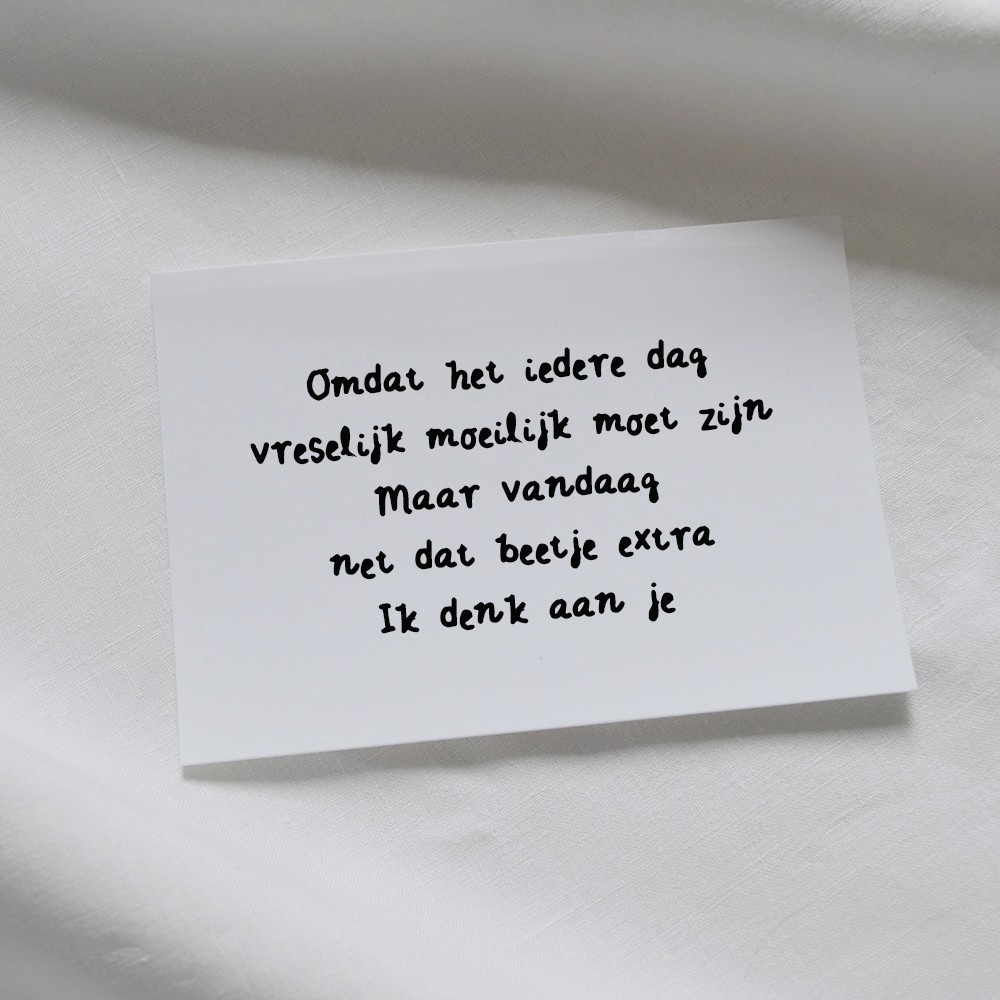 Omdat het iedere dag
vreselijk moeilijk moet zijn
Maar vandaag
net dat beetje extra
Ik denk aan je